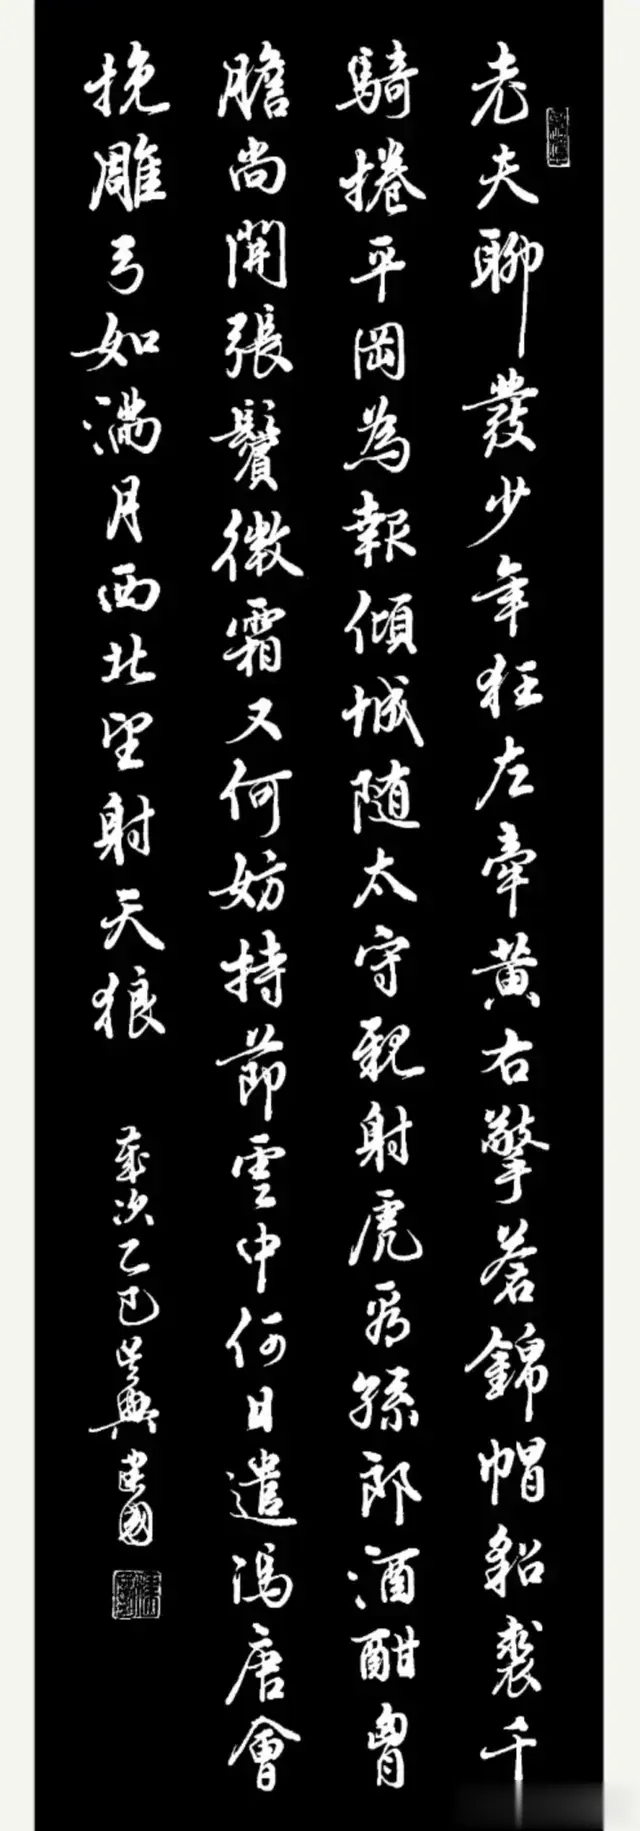 老夫聊發少年狂左牽黄右擎蒼錦帽貂裘千
騎捲平岡為報傾城随太守親射虎看孫郎酒酣胷
膽尚開張鬢微霜又何妨持節雲中何日遣馮唐會
挽雕弓如滿月西北望射天狼
歲次乙巳吴興建國